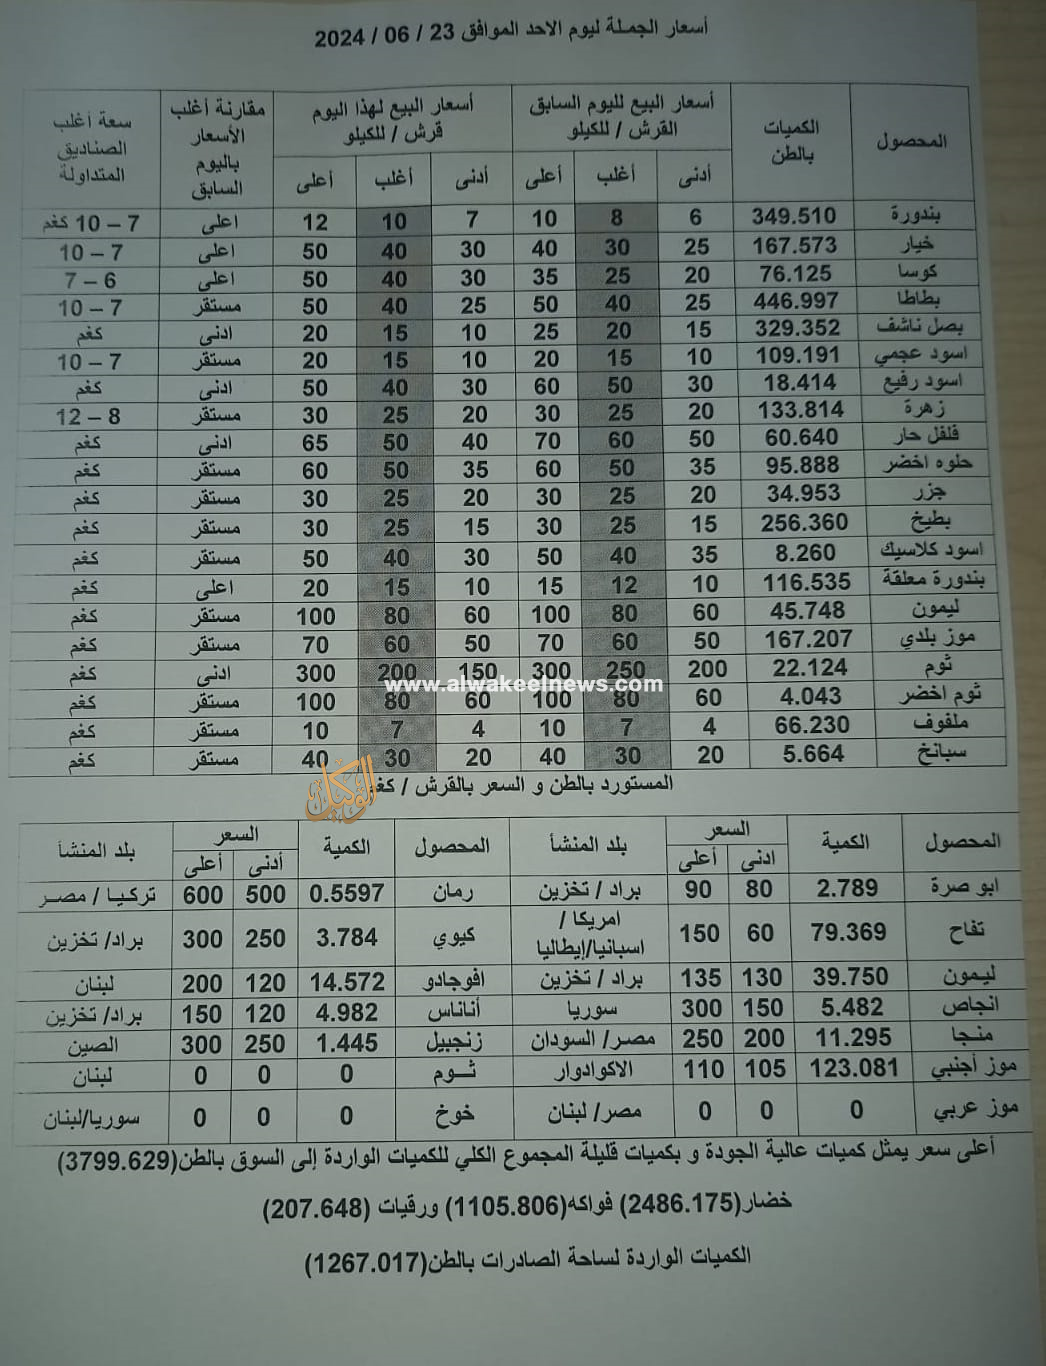 أسعار الجملة ليوم الاحد الموافق 23 / 06 / 2024
المحصول الكميات بالطن أسعار البيع لليوم السابق القرش / للكيلو أسعار البيع لهذا اليوم قرش / للكيلو مقارنة أغلب الأسعار باليوم السابق سعة أغلب الصناديق المتداولة
أدنى أغلب أعلى أدنى أغلب أعلى
بندورة 349.510 6 8 10 7 10 12 اعلى 7 – 10 كغم
خيار 167.573 25 30 40 30 40 50 اعلى 7 – 10
كوسا 76.125 20 25 35 30 40 50 اعلى 6 – 7
بطاطا 446.997 25 40 50 25 40 50 مستقر 7 – 10
بصل ناشف 329.352 15 20 25 10 15 20 ادنى كغم
اسود عجمي 109.191 10 15 20 10 15 20 مستقر 7 – 10
اسود رفيع 18.414 30 50 60 30 40 50 ادنى كغم
زهرة 133.814 20 25 30 20 25 30 مستقر 8 – 12
فلفل حار 60.640 50 60 70 40 50 65 ادنى كغم
حلوه اخضر 95.888 35 50 60 35 50 60 مستقر كغم
جزر 34.953 20 25 30 20 25 30 مستقر كغم
بطيخ 256.360 15 25 30 15 25 30 مستقر كغم
اسود كلاسيك 8.260 35 40 50 30 40 50 مستقر كغم
بندورة معلقة 116.535 10 12 15 10 15 20 اعلى كغم
ليمون 45.748 60 80 100 60 80 100 مستقر كغم
موز بلدي 167.207 50 60 70 50 60 70 مستقر كغم
ثوم 22.124 200 250 300 150 200 300 ادنى كغم
www.alwakeelnews.com
ثوم اخضر 4.043 60 80 100 60 80 100 مستقر كغم
ملفوف 66.230 4 7 10 4 7 10 مستقر كغم
سبانخ 5.664 20 30 40 20 30 40 مستقر كغم
الوكيل
المستورد بالطن و السعر بالقرش / كغم
المحصول الكمية السعر بلد المنشأ المحصول الكمية السعر بلد المنشأ
ادنى أعلى أدنى أعلى
ابو صرة 2.789 80 90 براد / تخزين رمان 0.5597 500 600 تركيا / مصر
تفاح 79.369 60 150 امريكا / اسبانيا/إيطاليا كيوي 3.784 250 300 براد/ تخزين
ليمون 39.750 130 135 براد / تخزين افوجادو 14.572 120 200 لبنان
انجاص 5.482 150 300 سوريا أناناس 4.982 120 150 براد/ تخزين
منجا 11.295 200 250 مصر/ السودان زنجبيل 1.445 250 300 الصين
موز أجنبي 123.081 105 110 الاكوادوار ثوم 0 0 0 لبنان
موز عربي 0 0 0 مصر/ لبنان خوخ 0 0 0 سوريا/لبنان
أعلى سعر يمثل كميات عالية الجودة و بكميات قليلة المجموع الكلي للكميات الواردة إلى السوق بالطن(3799.629)
خضار(2486.175) فواكه(1105.806) ورقيات (207.648)
الكميات الواردة لساحة الصادرات بالطن(1267.017)